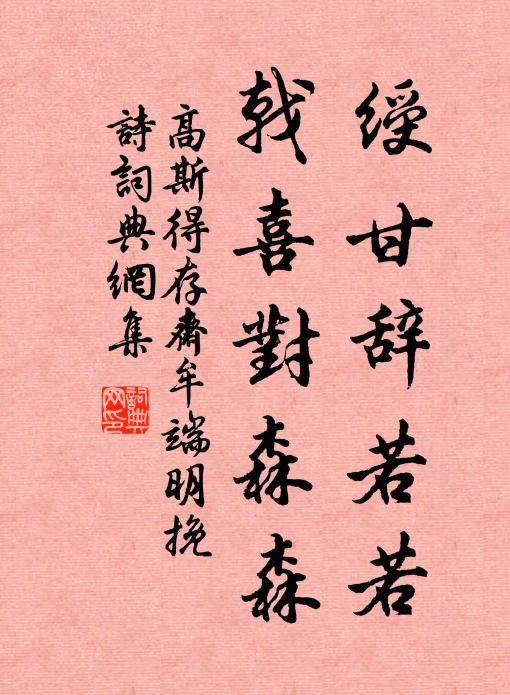 綬甘辞若若
戟喜對森森
高斯得存齋牟端明挽
詩詞典網集
詞典網印